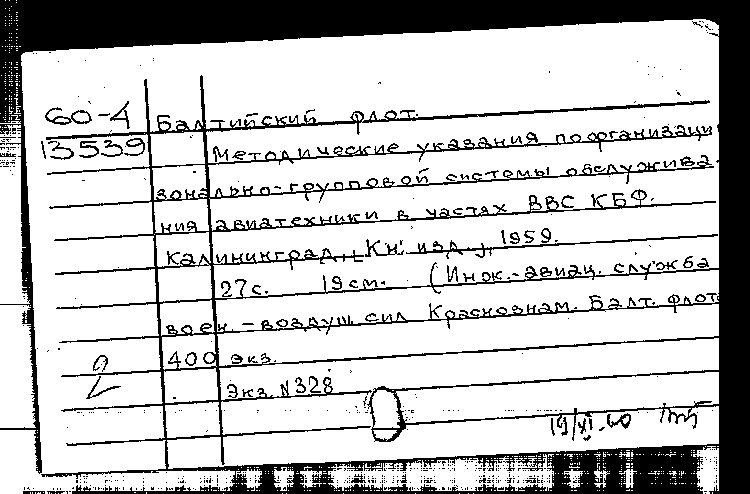 60-4 Балтийский флот.
13539 Методические указания по организаци
зонально-групповой системы обслужива-
ния авиатехники в частях ВВС КБФ.
Калининград, "Кн. изд.", 1959.
27с. 19см. (Инж.-авиац. служба
воен.-воздуш. сил Краснознам. Балт. флот
400 экз.
2
Экз. N328
19/VI-60